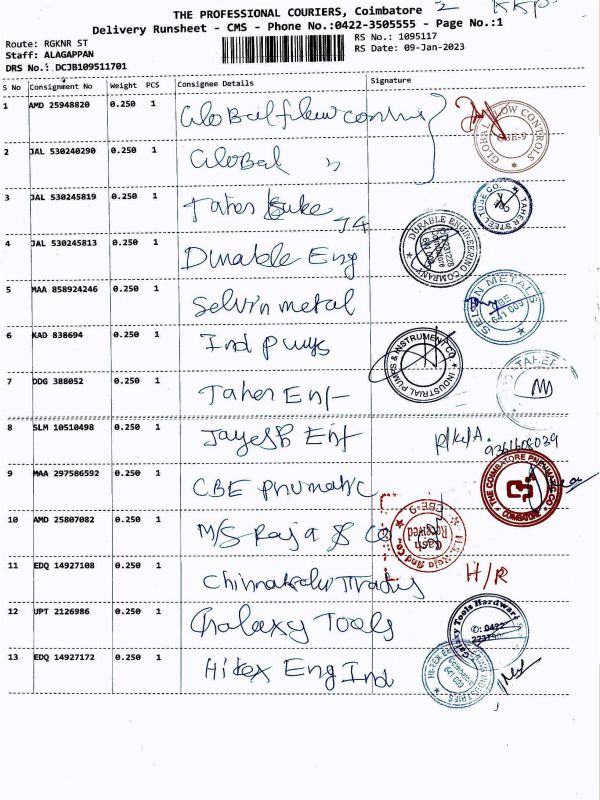 THE PROFESSIONAL COURIERS, Coimbatore
Delivery Runsheet - CMS - Phone No.:0422-3505555 - Page No.:1
Route: RGKNR ST
RS No.: 1095117
Staff: ALAGAPPAN
RS Date: 09-Jan-2023
DRS No.: DCJB109511701
S No Consignment No Weight PCS Consignee Details Signature
1 AMD 25948820 0.250 1 Global flow controls
GLOBAL FLOW CONTROLS CBE-9
2 JAL 530240290 0.250 1 Global "
3 JAL 530245819 0.250 1 Taher
TAHER STEEL TUBE CO.
4 JAL 530245813 0.250 1 Durable Eng
DURABLE ENGINEERING COMPANY
5 MAA 858924246 0.250 1 Selvin metal
SELVIN METALS CBE 641 009
6 KAD 838694 0.250 1 Ind pumps
INDUSTRIAL PUMPS & INSTRUMENT CO
7 DDG 388052 0.250 1 Taher Ent
TAHER
8 SLM 10510498 0.250 1 Jayesh Ent
9 MAA 297586592 0.250 1 CBE pnumatic
THE COIMBATORE PNEUMATIC CO COIMBATORE
10 AMD 25807082 0.250 1 M/S Raja & Co
M.S. Raja And Co. CBE-9 Cash Received
11 EDQ 14927108 0.250 1
H/R
12 UPT 2126986 0.250 1 Galaxy Tools
Galaxy Tools Hardware
13 EDQ 14927172 0.250 1 Hitex Eng Ind